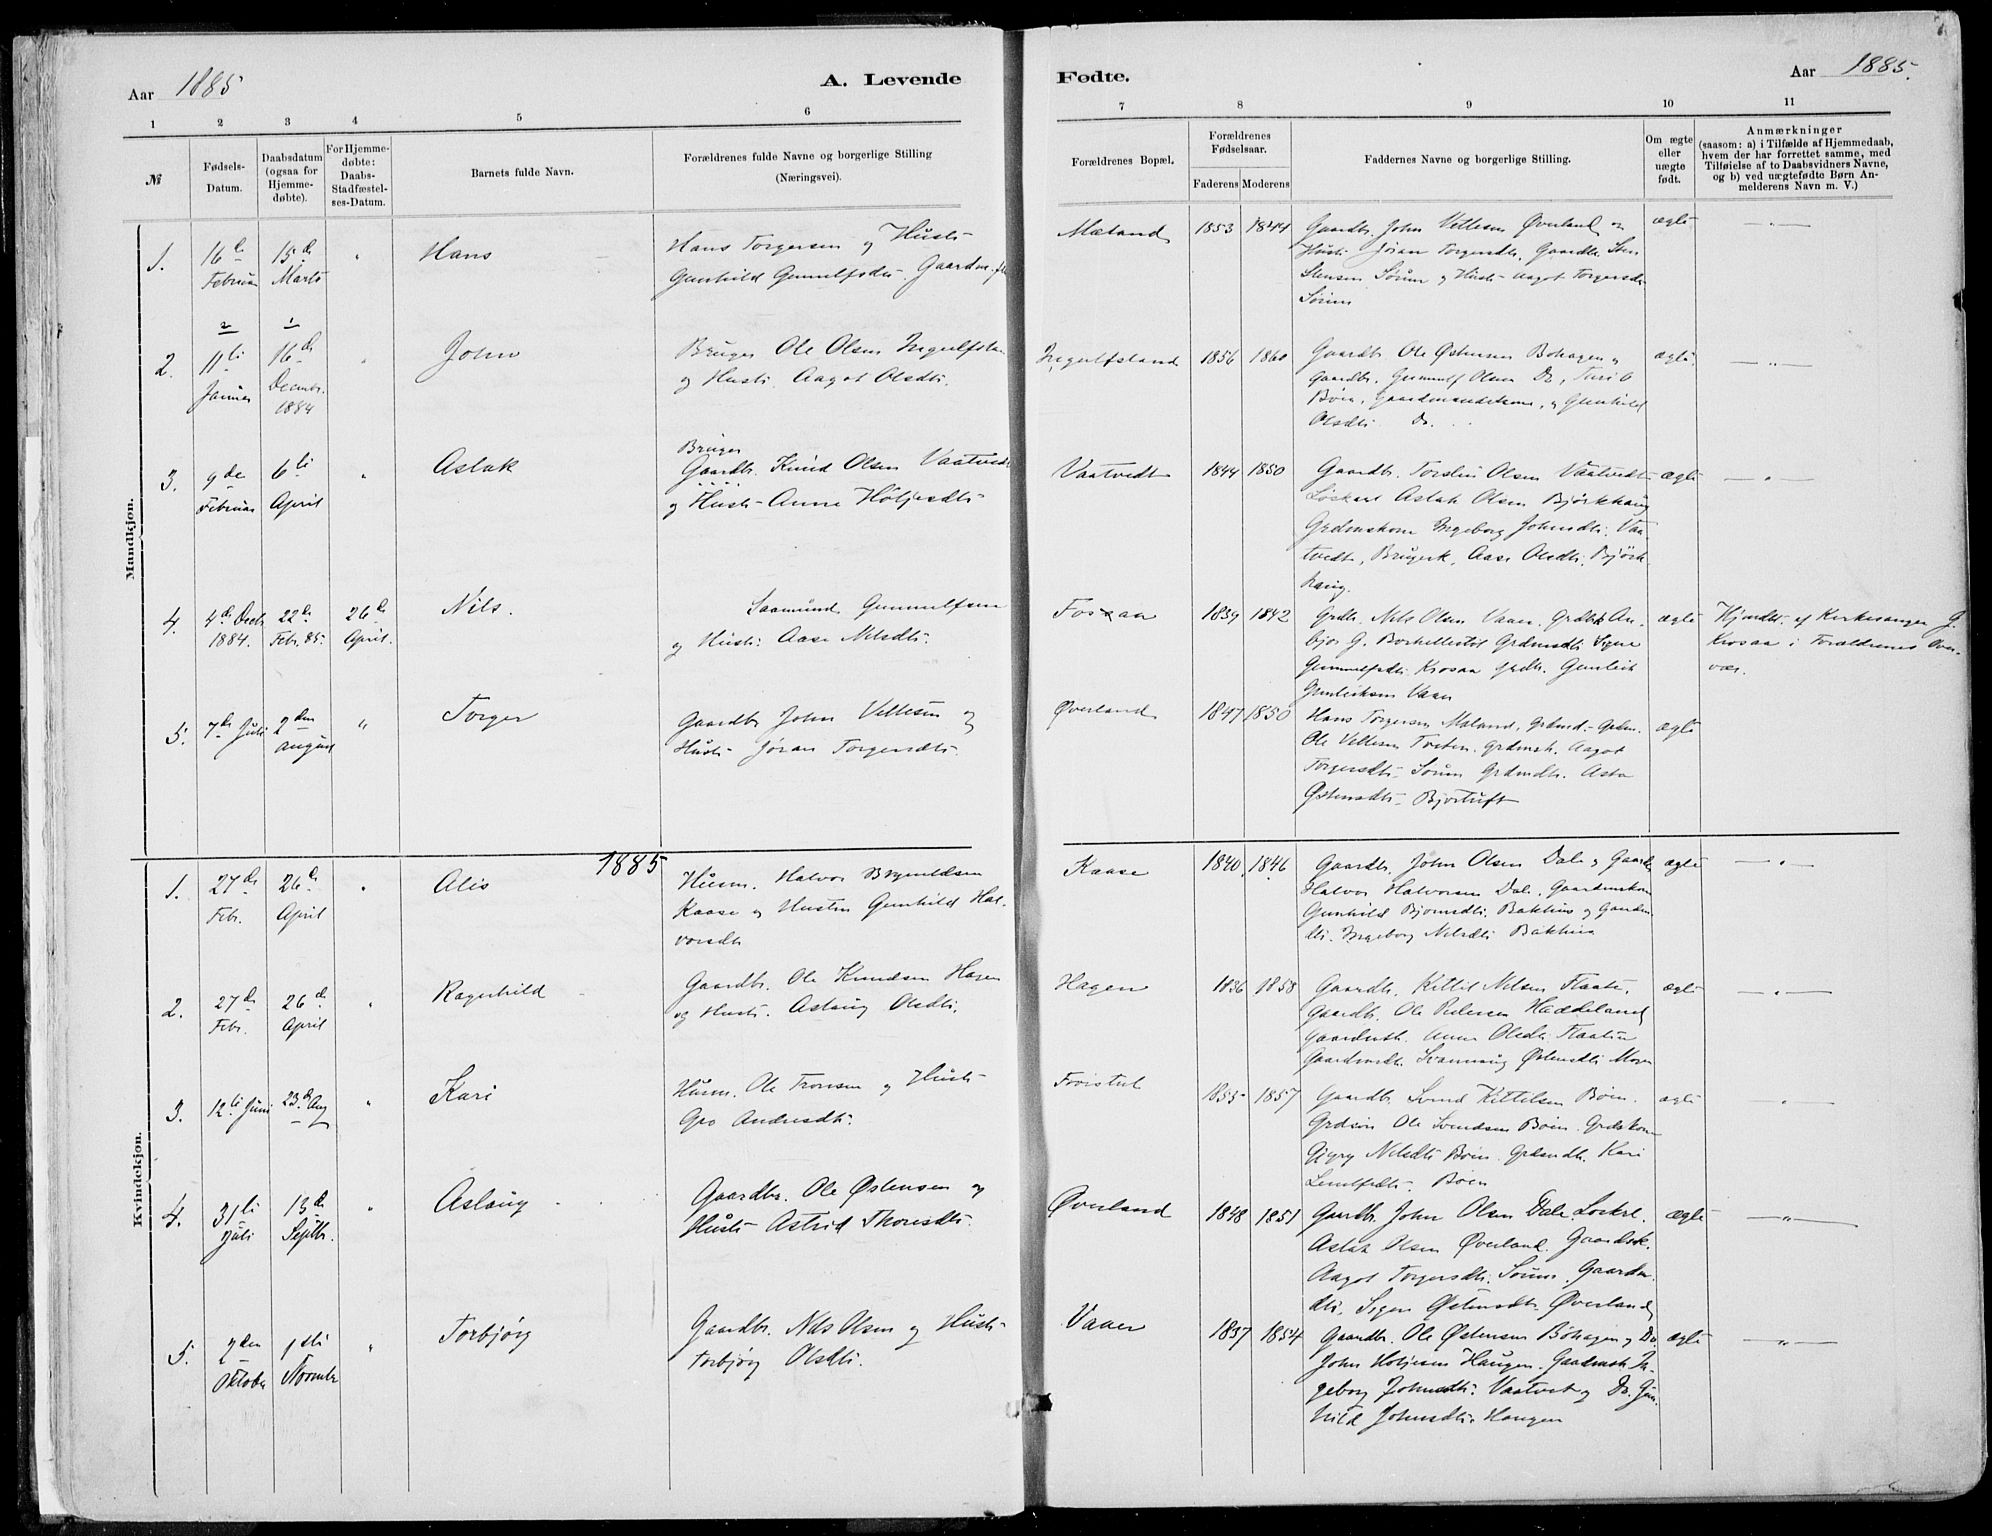 Aar 1885
A. Levende
1 2 3 4 5 6
№
Fødsels-Datum.
Daabsdatum (ogsaa for Hjemmedøbte).
For Hjemmedøbte: Daabs-Stadfæstelses-Datum.
Barnets fulde Navn.
Forældrenes fulde Navne og borgerlige Stilling (Næringsvei).
Mandkjøn.
1. 16de Februar 15de Marts " Hans
Hans Torgersen og Hustr.
Gunhild Gunnulfsdtr. Gaardm.
2 1
2. 11te Januar 16de Decmbr. 1884 " John
Bruger Ole Olsen Ingulfsland
og Hustr. Aagot Olsdtr.
3. 9de Februar 6te April " Aslak
Bruger
Gaardbr. Knud Olsen Vaatvedt
og Hustr. Anne Høljesdtr.
4. 4de Decb. 1884. 22de Feb. 85. 26de April. Nils.
Saamund Gunnulfsen
og Hustr. Aase Nilsdtr.
5. 7de Juli 2den August " Torger
Gaardbr John Vettesen og
Hustr. Jøran Torgersdtr.
Kvindekjøn.
1885
1. 27de Febr. 26de April " Alis
Husm. Halvor Brynildsen
Kaase og Hustru Gunhild Hal-
vorsdtr
2. 27de Febr. 26de April " Ragnhild
Gaardbr. Ole Knudsen Hagen
og Hustr. Aslaug Olsdtr.
3. 12te Juni 23de Aug " Kari
Husm. Ole Tronsen og Hustr.
Gro Andresdtr.
4. 31te Juli 13de Septbr. " Aslaug
Gaardbr. Ole Østensen og
Hustr. Astrid Thoresdtr.
5. 2den Oktober 1ste Novmber " Torbjørg
Gaardbr. Nils Olsen og Hustr.
Torbjørg Olsdtr.
Fødte.
Aar 1885.
7 8 9 10 11
Forældrenes Bopæl.
Forældrenes Fødselsaar.
Faderens Moderens
Faddernes Navne og borgerlige Stilling.
Om ægte eller uægte født.
Anmærkninger
(saasom: a) i Tilfælde af Hjemmedaab,
hvem der har forrettet samme, med
Tilføielse af to Daabsvidners Navne,
og b) ved uægtefødte Børn An-
melderens Navn m. V.)
Mæland 1853 1844 Gaardbr. John Vettesen Øverland og ægte "
Hustr. Jøran Torgersdtr. Gaardbr. Sten
Stensen Sørum og Hustr. Aagot Torgersdtr.
Sørum
Ingulfsland 1856 1860 Gaardbr. Ole Østensen Bøhagen og ægte. "
Gaardbr. Gunnulf Olsen Do, Turi O
Bøen, Gaardmandskone, og Gunhild
Olsdtr. Do.
Vaatvedt 1844 1850 Gaardbr. Torsten Olsen Vaatvedt ægte "
Løskarl Aslak Olsen Bjørkhaug
Grdmskone Ingeborg Johnsdtr. Vaa-
tvedt, Brugerk, Aase Olsdtr. Bjørk
haug.
Fosaa 1839 1842 Grdbr. Nils Olsen Vaaer. ægte
bjør G. Grdmdtr. Signe
Gunnulfsdtr. Krosaa Gunleik
Gunleiksen Vaaer
Hjmdbt. af Kirkesanger G.
Krosaa i Forældrenes Over-
vær.
Øverland 1847 1850 Hans Torgersen Mæland, ægte
Ole Vettesen Grdmsk. Aagot
Torgersdtr. Sørum Grdmdtr. Asta
Østensdtr. Bjortuft
Kaase 1840 1846 Gaardbr. John Olsen Dale og Gaardbr. ægte "
Halvor Halvorsen Dale, Gaardmskone
Gunhild Bjørnsdtr. Bakhus og Gaardm.
dtr. Ingeborg Nilsdtr Bakhus
Hagen 1836 1858 Gaardbr. Kittil Nilsen Flaate, ægte "
Gaardbr. Ole Pedersen Haddeland
Gaardmsk. Anne Olsdtr. Flaaten
Gaardmdtr. Svannaug Østensdtr. Moen
Froistul 1853 1857 Gaardbr. Svend Kittilsen Bøen. ægte "
Grdsøn Ole Svendsen Bøen. Grdskone
Gigry Nilsdtr Bøen. Grdmdtr. Kari
Bøen
Øverland 1848 1851 Gaardbr. John Olsen Dale. Løskrl. ægte "
Aslak Olsen Øverland. Gaardsk.
Aagot Torgersdtr. Sørum. Gaardm.
dtr. Sigen Østensdtr. Øverland
Vaaer 1837 1854 Gaardbr. Ole Østensen Bøhagen og Do. ægte "
John Høljesen Haugen. Gaardmsk. In-
geborg Johnsdtr. Vaatvet og Do. Gun-
hild Johnsdtr. Haugen